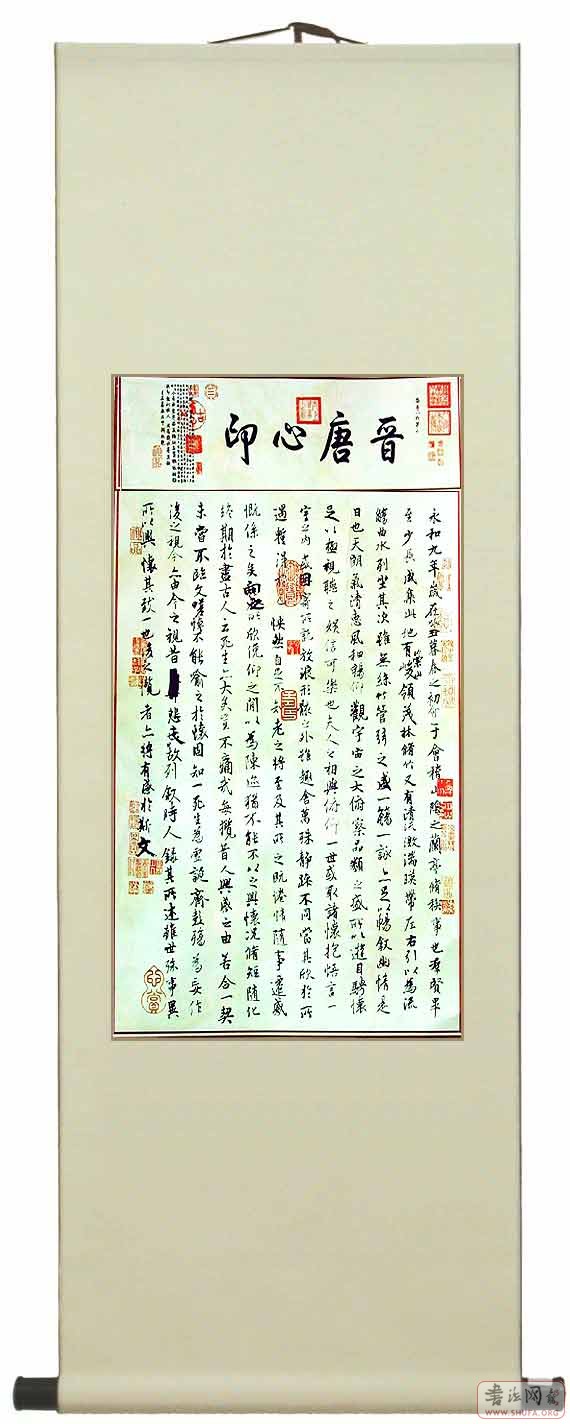 晉唐心印
永和九年歲在癸丑暮春之初會于會稽山陰之蘭亭脩稧事也羣賢畢
至少長咸集此地有崇山峻領茂林脩竹又有清流激湍暎帶左右引以為流
觴曲水列坐其次雖無絲竹管弦之盛一觴一詠亦足以暢敘幽情是
日也天朗氣清惠風和暢仰觀宇宙之大俯察品類之盛所以遊目騁懷
足以極視聽之娛信可樂也夫人之相與俯仰一世或取諸懷抱悟言一
室之內或因寄所託放浪形骸之外雖趣舍萬殊靜躁不同當其欣於所
遇暫得於己怏然自足不知老之將至及其所之既惓情隨事遷感
慨係之矣向之所欣俛仰之間以為陳迹猶不能不以之興懷況脩短隨化
終期於盡古人云死生亦大矣豈不痛哉每攬昔人興感之由若合一契
未嘗不臨文嗟悼不能喻之於懷固知一死生為虛誕齊彭殤為妄作
後之視今亦由今之視昔悲夫故列敘時人錄其所述雖世殊事異
所以興懷其致一也後之覽者亦將有感於斯文
WWW.SHUFA.ORG